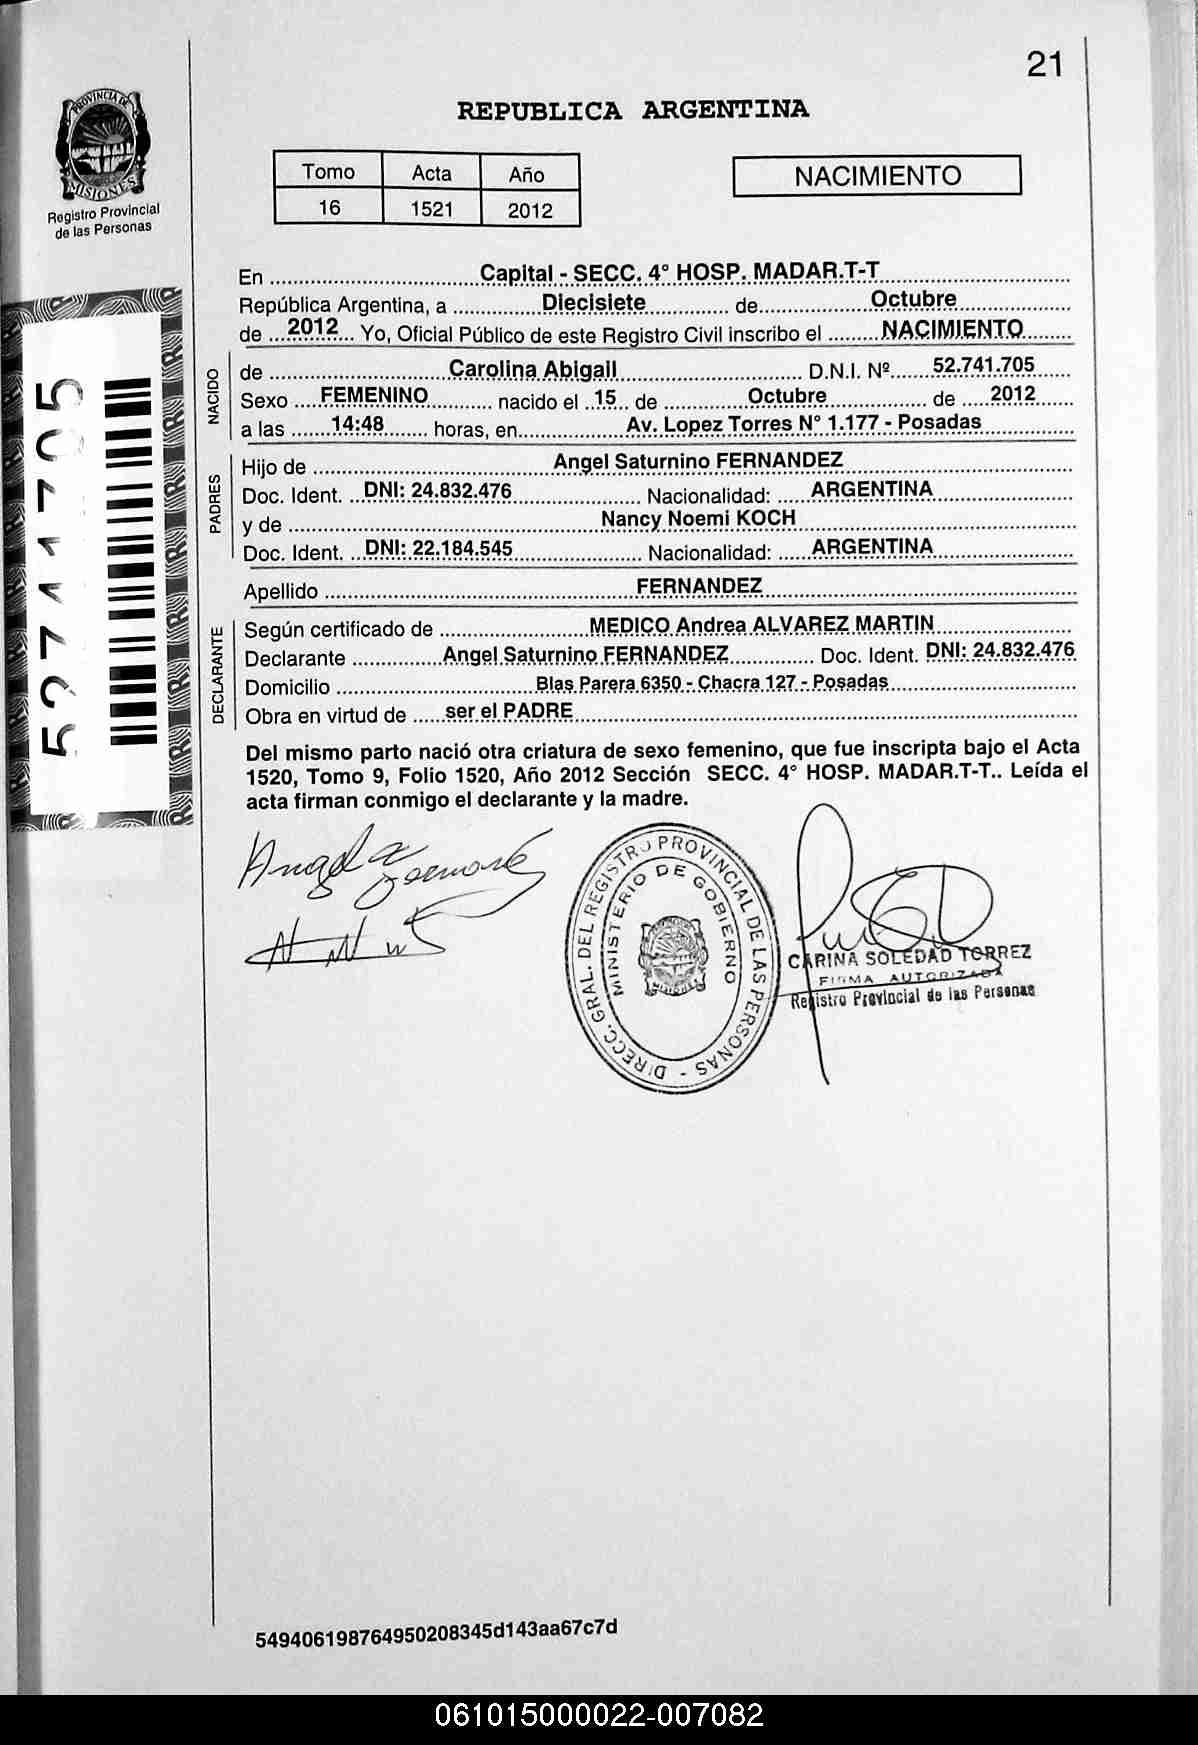 21
PROVINCIA DE
MISIONES
Registro Provincial
de las Personas
REPUBLICA ARGENTINA
Tomo Acta Año
16 1521 2012
NACIMIENTO
52741705
En Capital - SECC. 4° HOSP. MADAR.T-T
República Argentina, a Diecisiete de Octubre
de 2012 Yo, Oficial Público de este Registro Civil inscribo el NACIMIENTO
NACIDO
de Carolina Abigail D.N.I. Nº 52.741.705
Sexo FEMENINO nacido el 15 de Octubre de 2012
a las 14:48 horas, en Av. Lopez Torres N° 1.177 - Posadas
PADRES
Hijo de Angel Saturnino FERNANDEZ
Doc. Ident. DNI: 24.832.476 Nacionalidad: ARGENTINA
y de Nancy Noemi KOCH
Doc. Ident. DNI: 22.184.545 Nacionalidad: ARGENTINA
Apellido FERNANDEZ
DECLARANTE
Según certificado de MEDICO Andrea ALVAREZ MARTIN
Declarante Angel Saturnino FERNANDEZ Doc. Ident. DNI: 24.832.476
Domicilio Blas Parera 6350 - Chacra 127 - Posadas
Obra en virtud de ser el PADRE
Del mismo parto nació otra criatura de sexo femenino, que fue inscripta bajo el Acta
1520, Tomo 9, Folio 1520, Año 2012 Sección SECC. 4° HOSP. MADAR.T-T.. Leída el
acta firman conmigo el declarante y la madre.
DIRECC. GRAL. DEL REGISTRO PROVINCIAL DE LAS PERSONAS -
MINISTERIO DE GOBIERNO
MISIONES
CARINA SOLEDAD TORREZ
FIRMA AUTORIZADA
Registro Provincial de las Personas
549406198764950208345d143aa67c7d
061015000022-007082